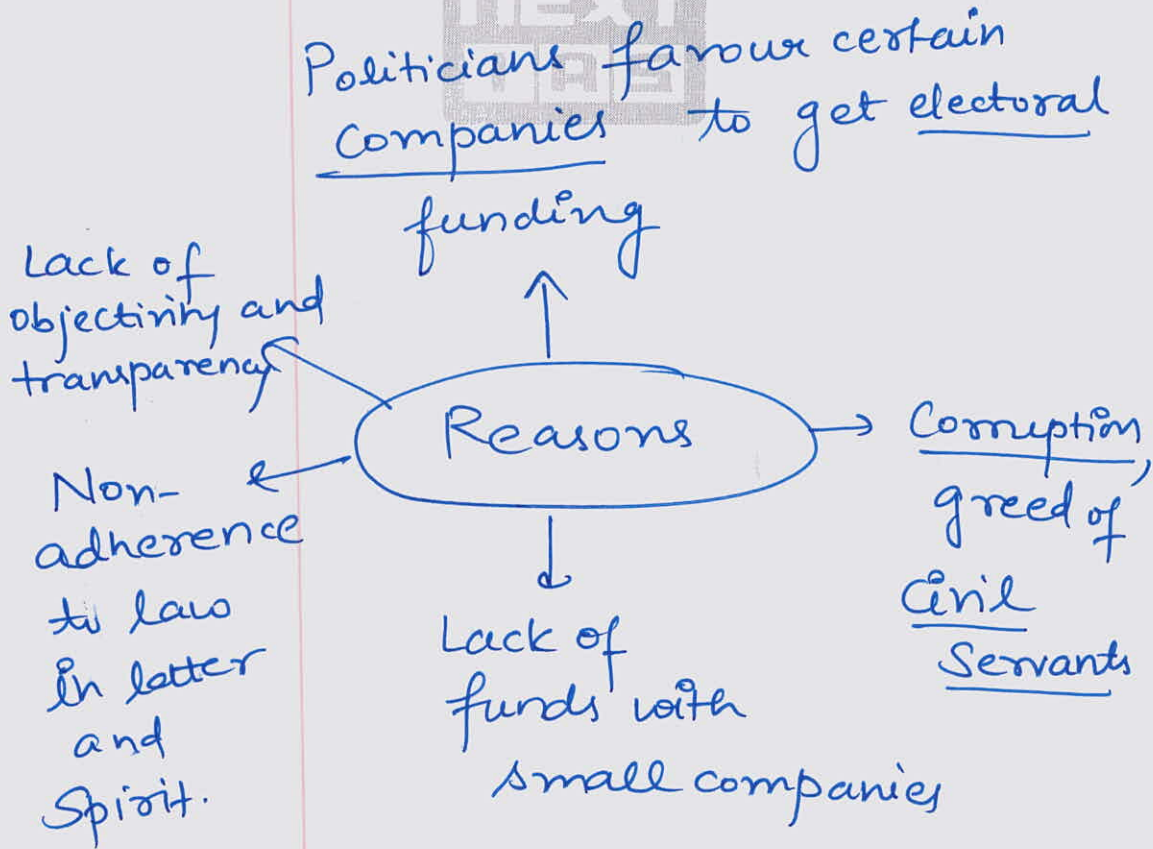 NEXT
IAS
Politicians favour certain
companies to get electoral
funding
Lack of
objectivity and
transparency
Reasons
Corruption,
greed of
Civil
Servants
Non-
adherence
to law
in letter
and
Spirit.
Lack of
funds with
small companies